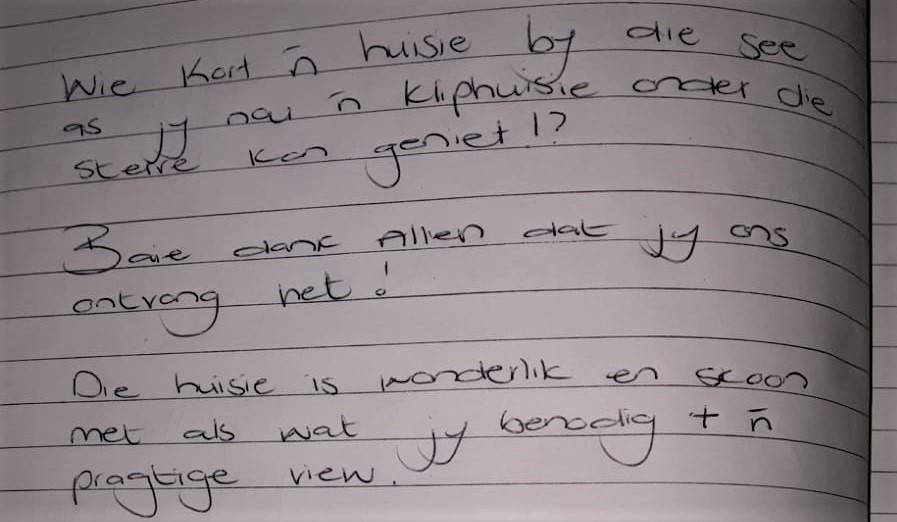 Wie kort 'n huisie by die see
as jy nou 'n kliphuisie onder die
sterre kan geniet!?
Baie dank Allen dat jy ons
ontvang het!
Die huisie is wonderlik en skoon
met als wat jy benodig + 'n
pragtige view.